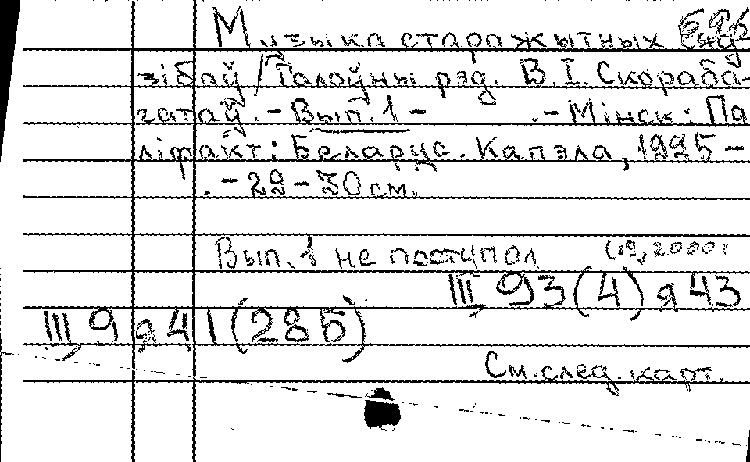 Музыка старажытных
зібаў / Галоўны рэд. В.І. Скораба-
гатаў. - Вып. 1 - .- Мінск: Па
ліфакт: Беларус. Капэла, 1995 -
. - 29 - 30 см.
Вып. 1 не поступал
III, 93(4) я 43
III, 9 я 41 (285)
См. след. карт.